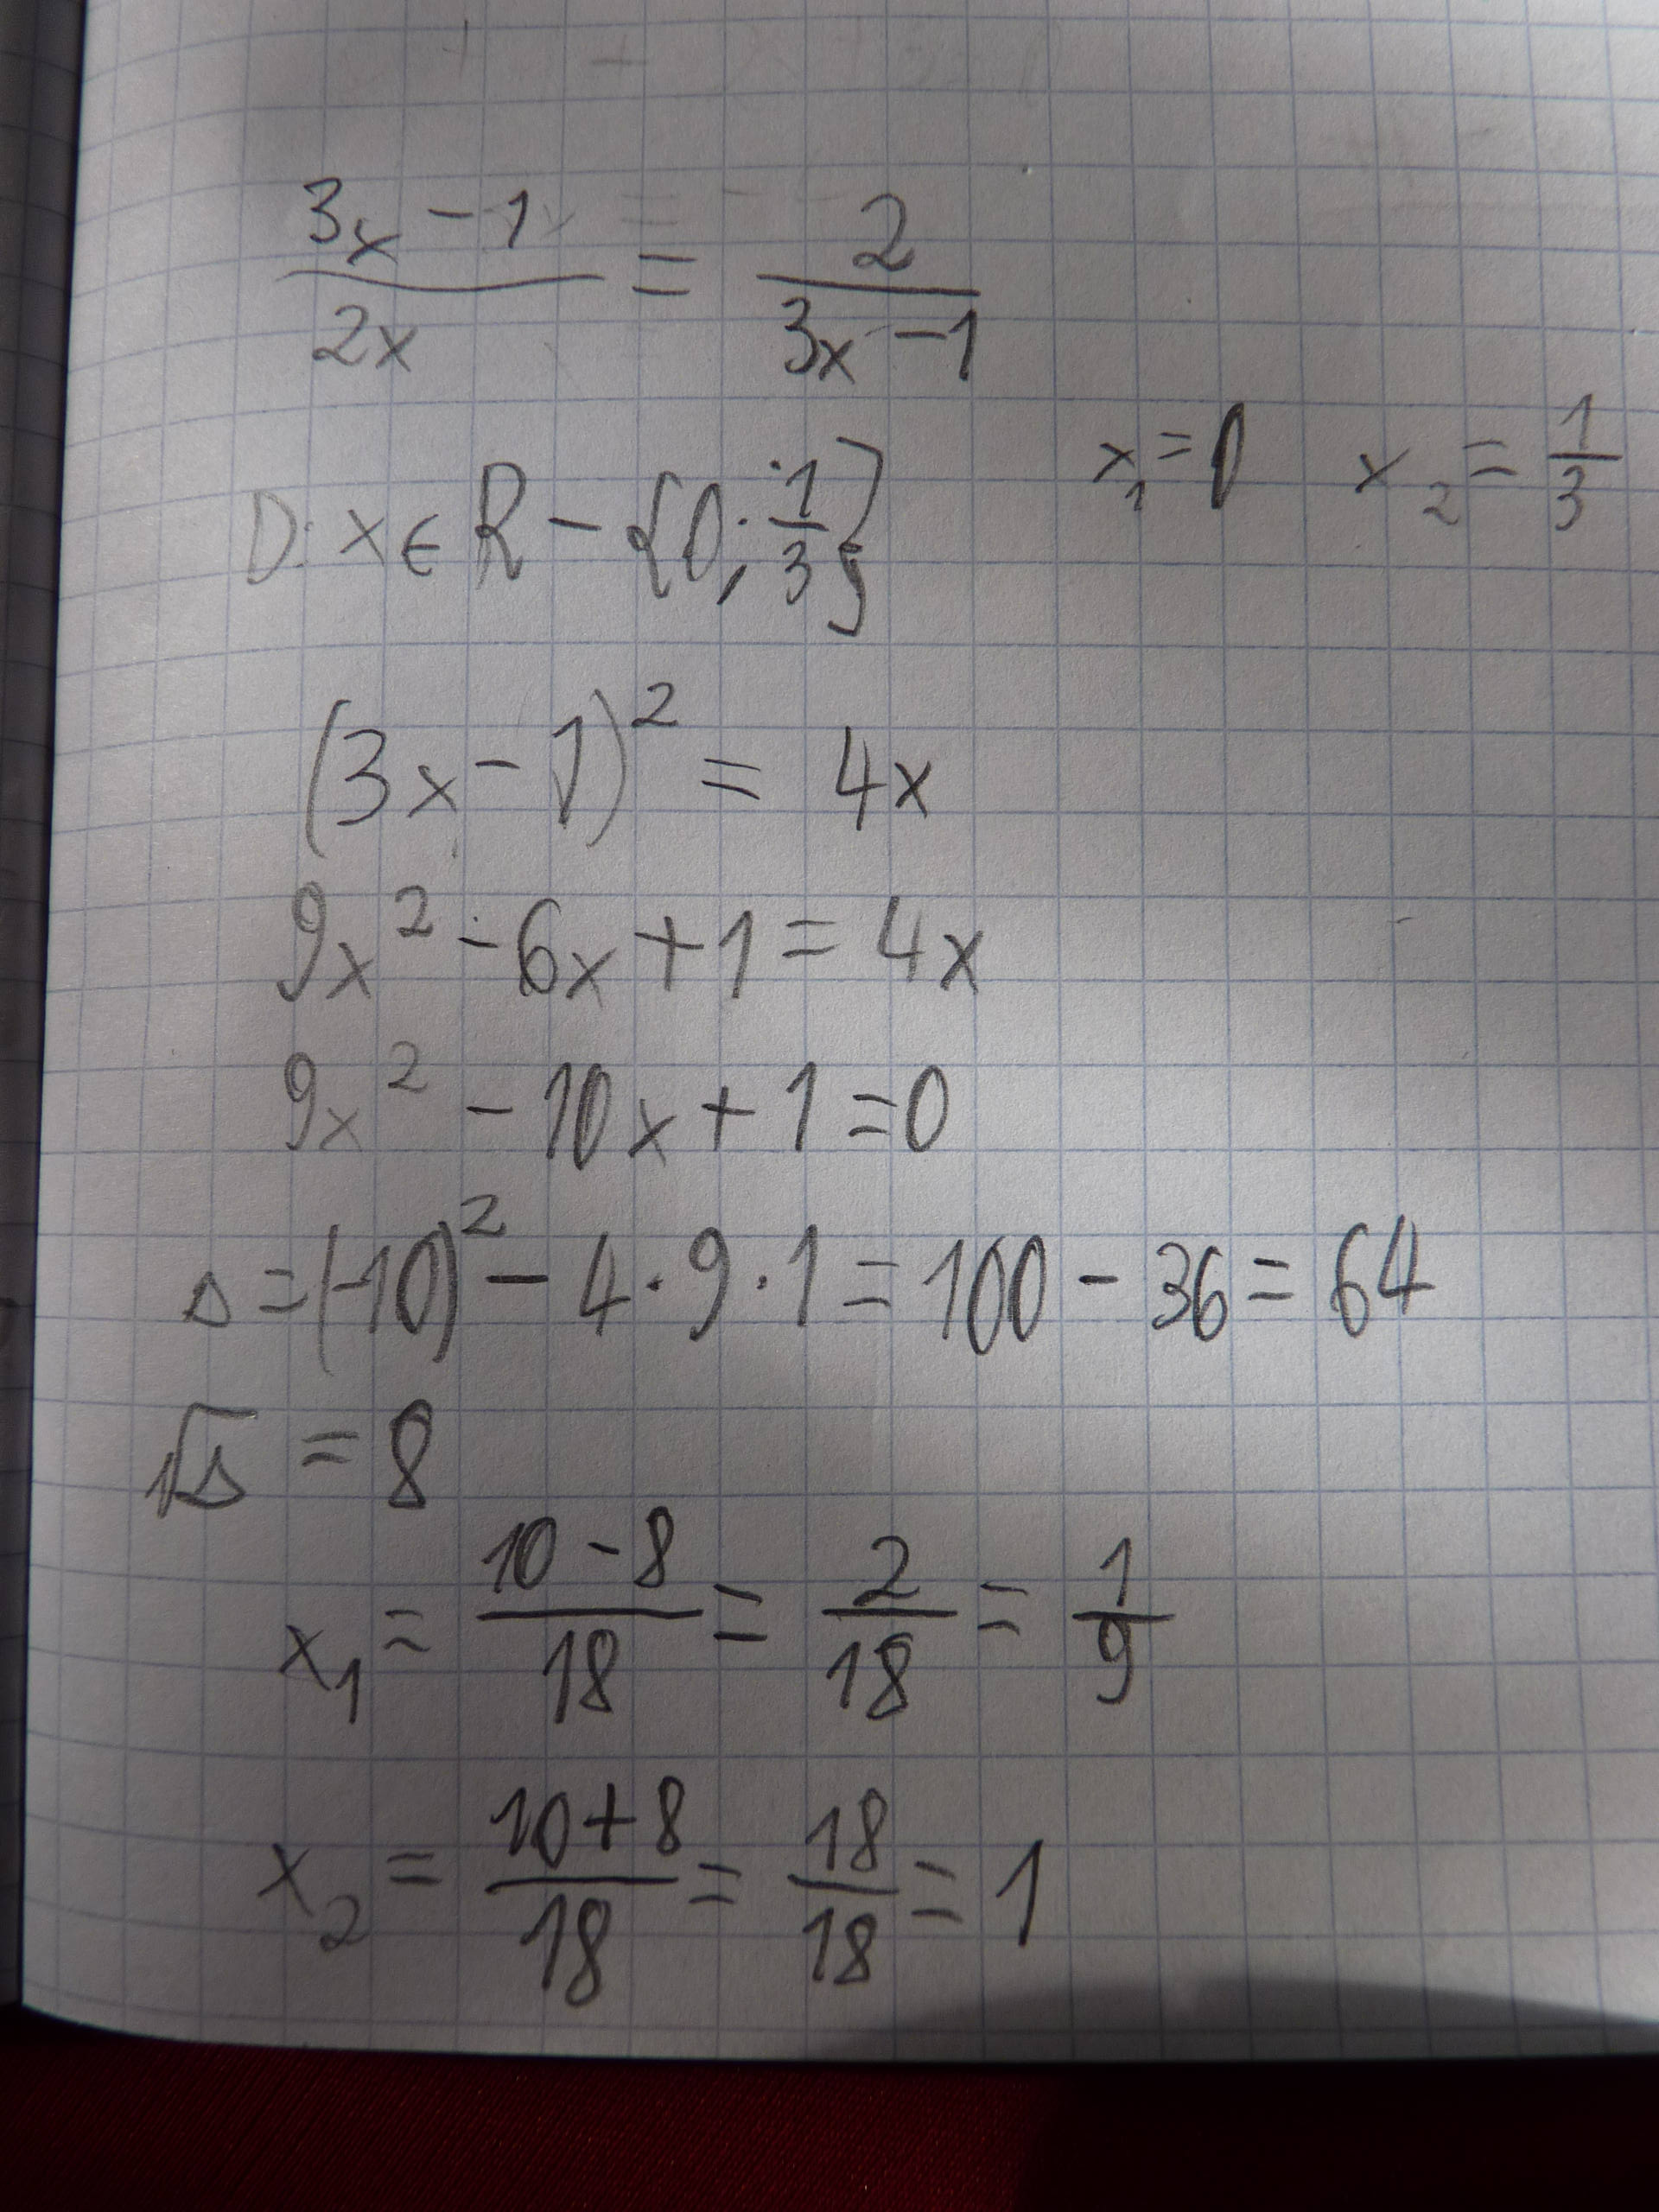 (3x - 1)/(2x) = 2/(3x - 1)
D: x ∈ R - {0; 1/3} x₁ = 0 x₂ = 1/3
(3x - 1)² = 4x
9x² - 6x + 1 = 4x
9x² - 10x + 1 = 0
Δ = (-10)² - 4 · 9 · 1 = 100 - 36 = 64
√Δ = 8
x₁ = (10 - 8)/18 = 2/18 = 1/9
x₂ = (10 + 8)/18 = 18/18 = 1